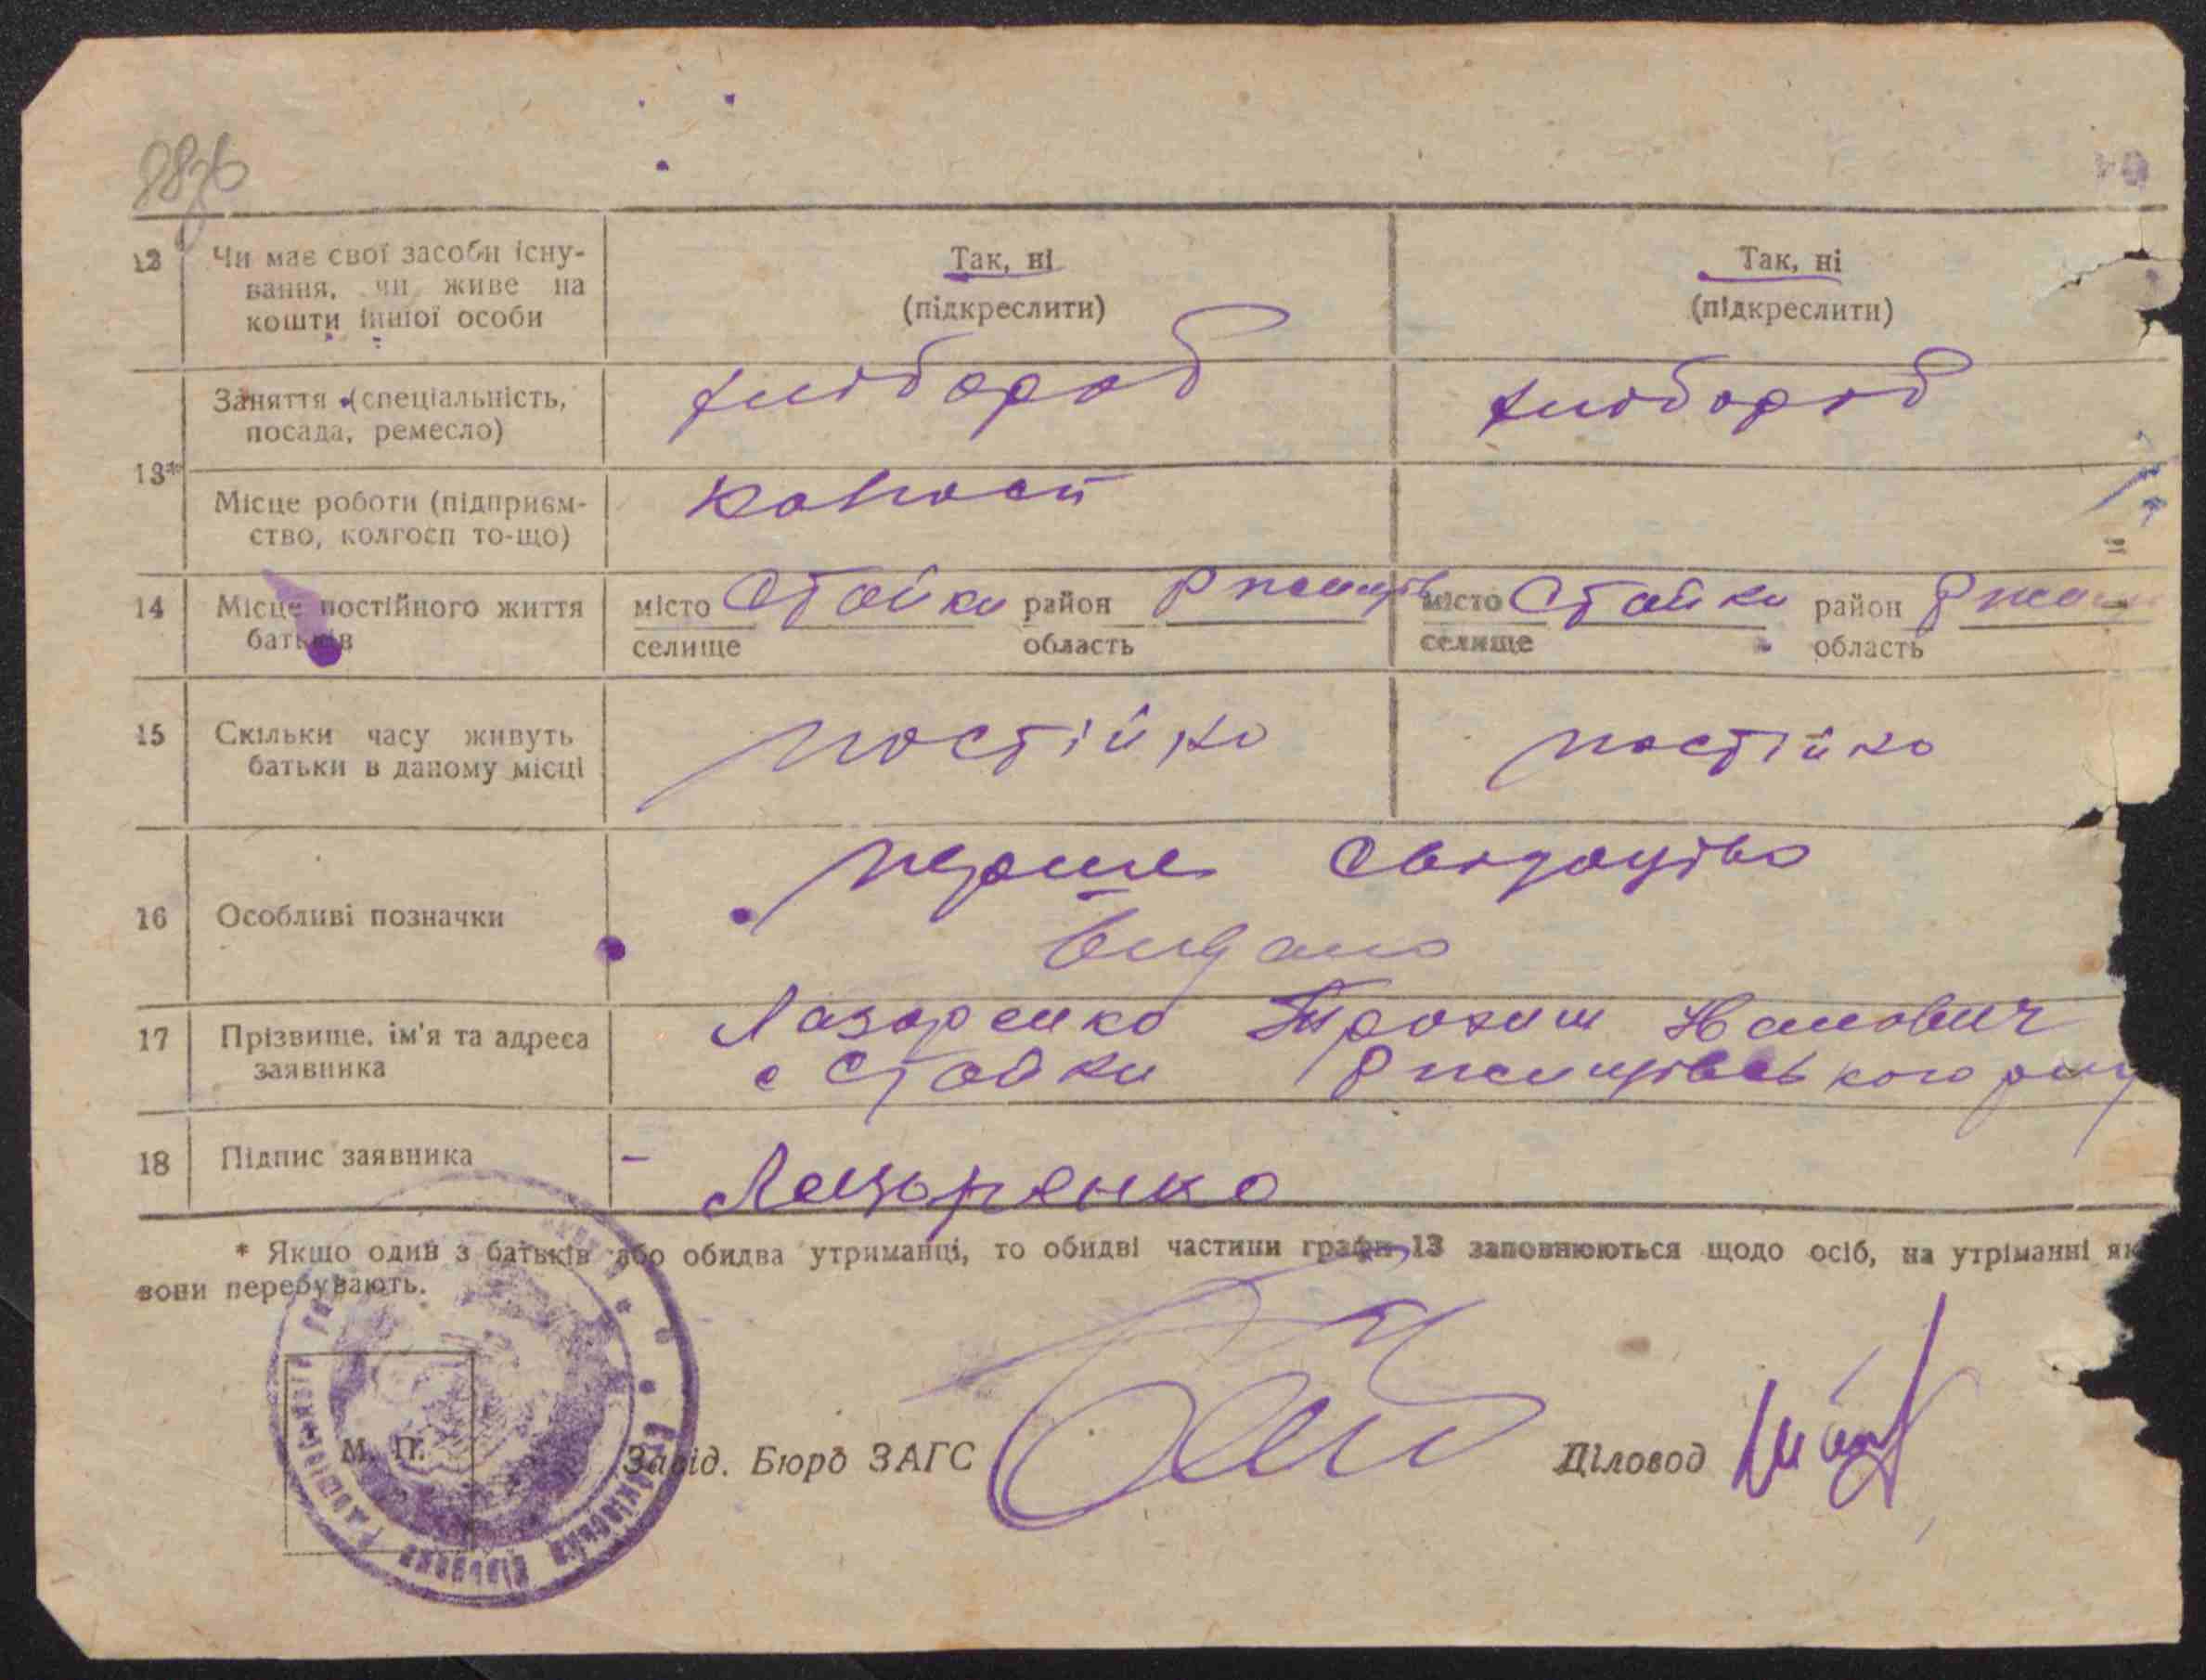 8876
12 Чи має свої засоби існу-
вання, чи живе на
кошти іншої особи
Так, ні
(підкреслити)
Так, ні
(підкреслити)
13*
Заняття (спеціальність,
посада, ремесло)
хлібороб
хлібороб
Місце роботи (підприєм-
ство, колгосп то-що)
14 Місце постійного життя
батьків
місто Стайки район Ржищів
селище область
місто Стайки район
селище область
15 Скільки часу живуть
батьки в даному місці
постійно
постійно
16 Особливі позначки
перше свідоцтво
видано
17 Прізвище, ім'я та адреса
заявника
Лазаренко Трохим Іванович
с Стайки Ржищівського
18 Підпис заявника
- Лазаренко
* Якщо один з батьків або обидва утриманці, то обидві частини графи 13 заповнюються щодо осіб, на утріманні як
вони перебувають.
М. П.
Завід. Бюро ЗАГС
Діловод